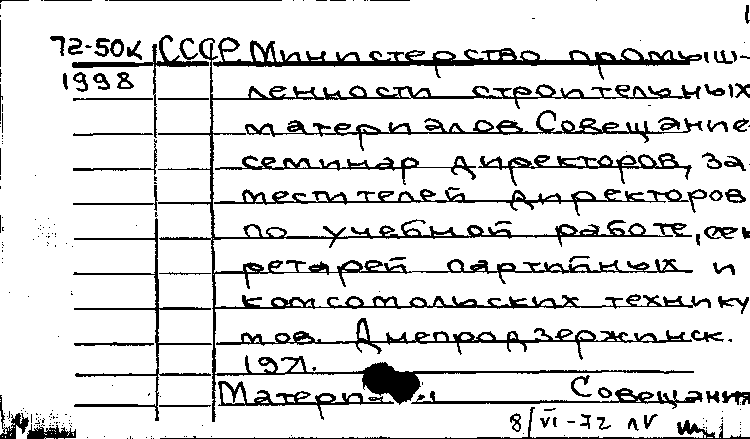 72-50к СССР. Министерство промыш-
1998
ленности строительных
материалов. Совещание
семинар директоров, за
местителей директоров
по учебной работе, сек
ретарей партийных и
комсомольских технику
мов. Днепродзержинск.
1971.
Материалы Совещания
8/VI-72